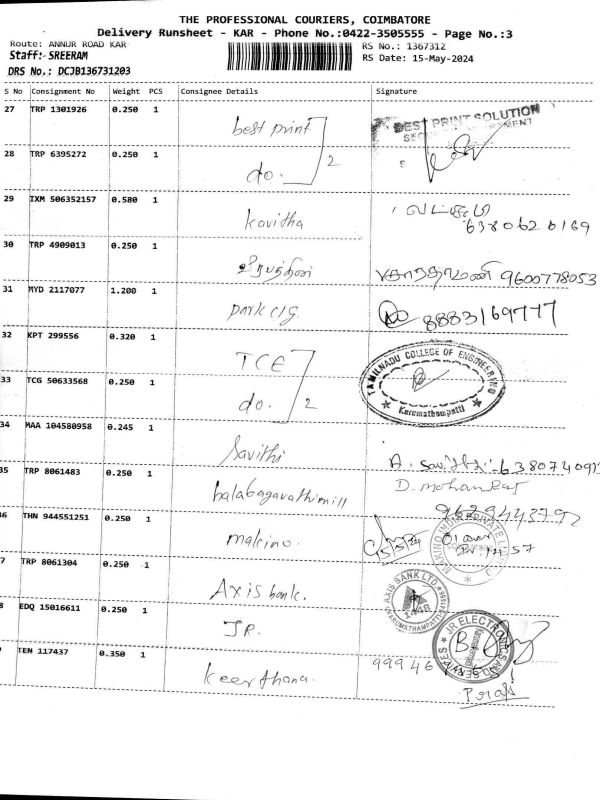 THE PROFESSIONAL COURIERS, COIMBATORE
Delivery Runsheet - KAR - Phone No.:0422-3505555 - Page No.:3
Route: ANNUR ROAD KAR RS No.: 1367312
Staff:- SREERAM RS Date: 15-May-2024
DRS No.: DCJB136731203
S No Consignment No Weight PCS Consignee Details Signature
27 TRP 1301926 0.250 1 best print BEST PRINT SOLUTION
28 TRP 6395272 0.250 1 do. 2
29 IXM 506352157 0.580 1 kavitha
6380620169
30 TRP 4909013 0.250 1 9600778053
31 MYD 2117077 1.200 1 park clg. 8883169777
32 KPT 299556 0.320 1 TCE TAMILNADU COLLEGE OF ENGINEERING
33 TCG 50633568 0.250 1 do. 2 Karumathampatti
34 MAA 104580958 0.245 1 Savithi A. Savithi
35 TRP 8061483 0.250 1 balabagavathimill D. mohanraj
36 THN 944551251 0.250 1 makino. MAKINO INDIA PRIVATE LIMITED
TRP 8061304 0.250 1 Axis bank. AXIS BANK LTD.
1448
EDQ 15016611 0.250 1 JR. JR ELECTRONICS AND SERVICES
TEN 117437 0.350 1 keerthana. 99946